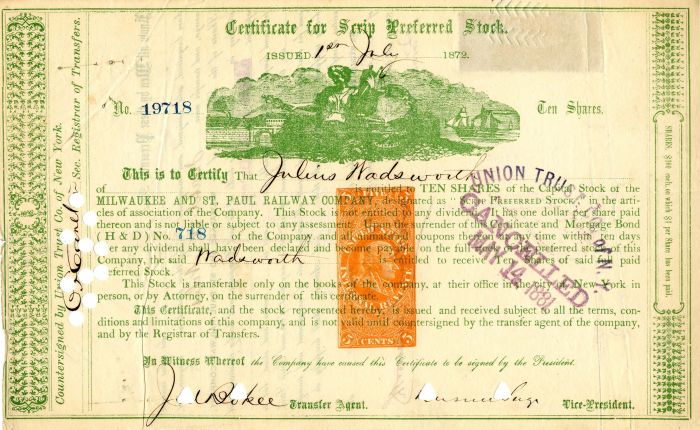 Certificate for Scrip Preferred Stock.
ISSUED 1st July 1872.
No. 19718
Ten Shares.
This is to Certify That Julius Wadsworth
of is entitled to TEN SHARES of the Capital Stock of the
MILWAUKEE AND ST. PAUL RAILWAY COMPANY, designated as "Scrip Preferred Stock," in the arti-
cles of association of the Company. This Stock is not entitled to any dividend, it has one dollar per share paid
thereon and is not liable or subject to any assessment. Upon the surrender of this Certificate and Mortgage Bond
(H & D) No. 718 of the Company and all unmatured coupons thereon, at any time within ten days
after any dividend shall have been declared and become payable on the full stock preferred stock of this
Company, the said Wadsworth is entitled to receive ten Shares of said full paid
Preferred Stock.
This Stock is transferable only on the books of the company, at their office in the city of New York in
person, or by Attorney, on the surrender of this certificate.
This Certificate, and the stock represented hereby, is issued and received subject to all the terms, con-
ditions and limitations of this company, and is not valid until countersigned by the transfer agent of the company,
and by the Registrar of Transfers.
In Witness Whereof the Company have caused this Certificate to be signed by the President.
Transfer Agent.
Russell Sage
Vice-President.
Countersigned by Union Trust Co. of New York.
Sec. Registrar of Transfers.
SHARES $100 each, on which $1 per Share has been paid.
UNION TRUST CO. OF N.Y.
CANCELLED
MAY 14 1881
INTERNAL REVENUE
5 CENTS 5